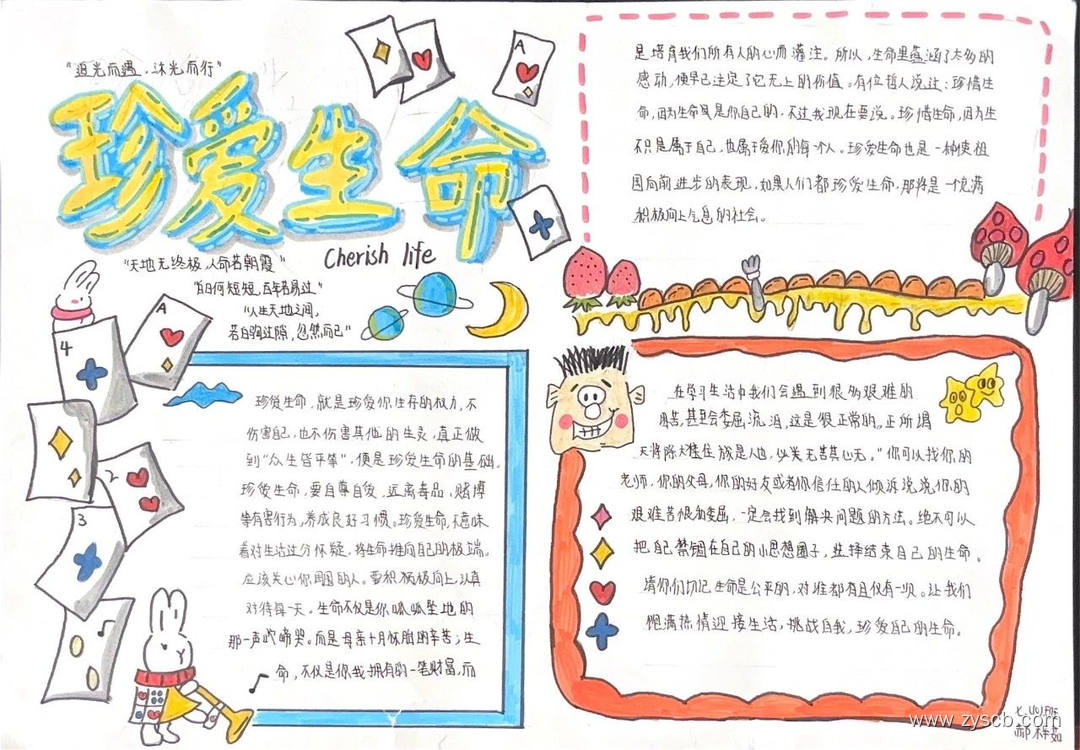 "追光而遇，沐光而行"
珍爱生命
Cherish life
"天地无终极，人命若朝霞"
"百日何短短，百年苦易过。"
"人生天地之间，
若白驹过隙，忽然而已"
A
A
4
2
3
珍爱生命，就是珍爱你生存的权力，不
伤害自己，也不伤害其他的生灵，真正做
到"众生皆平等"，便是珍爱生命的基础。
珍爱生命，要自尊自爱，远离毒品、赌博
等有害行为，养成良好习惯。珍爱生命，不意味
着对生活过分怀疑，将生命推向自己的极端。
应该关心你周围的人。要积极向上，认真
对待每一天。生命不仅是你呱呱坠地的
那一声啼哭。而是母亲十月怀胎的辛苦；生
命，不仅是你我拥有的一笔财富，而
是培育我们所有人的心血灌注。所以，生命里蕴涵了太多的
感动，便早已注定了它无上的价值。有位哲人说过：珍惜生
命，因为生命只是你自己的，不过我现在要说。珍惜生命，因为生
不只是属于自己，也属于爱你的每个人。珍爱生命也是一种使祖
国向前进步的表现，如果人们都珍爱生命，那将是一充满
积极向上气息的社会。
在学习生活中我们会遇到很多艰难的
甚至会委屈流泪，这是很正常的。正所谓
天将降大任 "你可以找你的
老师，你的父母，你的好友或者你信任的人倾诉说说你的
艰难苦恨和委屈，一定会找到解决问题的方法。绝不可以
把自己禁锢在自己的小思想圈子，选择结束自己的生命。
请你们切记生命是公平的，对谁都有且仅有一次。让我们
饱满热情迎接生活，挑战自我，珍爱自己的生命。
www.zyscb.com